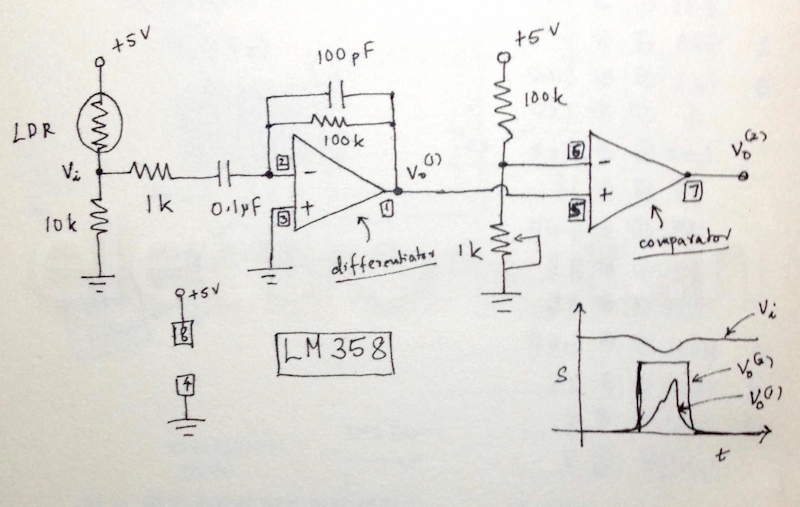 +5V
LDR
Vi
10k
1k
0.1µF
100pF
100k
2
3
-
+
1
Vo(1)
differentiator
+5V
100k
1k
6
5
-
+
7
Vo(2)
comparator
+5V
8
4
LM358
S
t
Vi
Vo(2)
Vo(1)